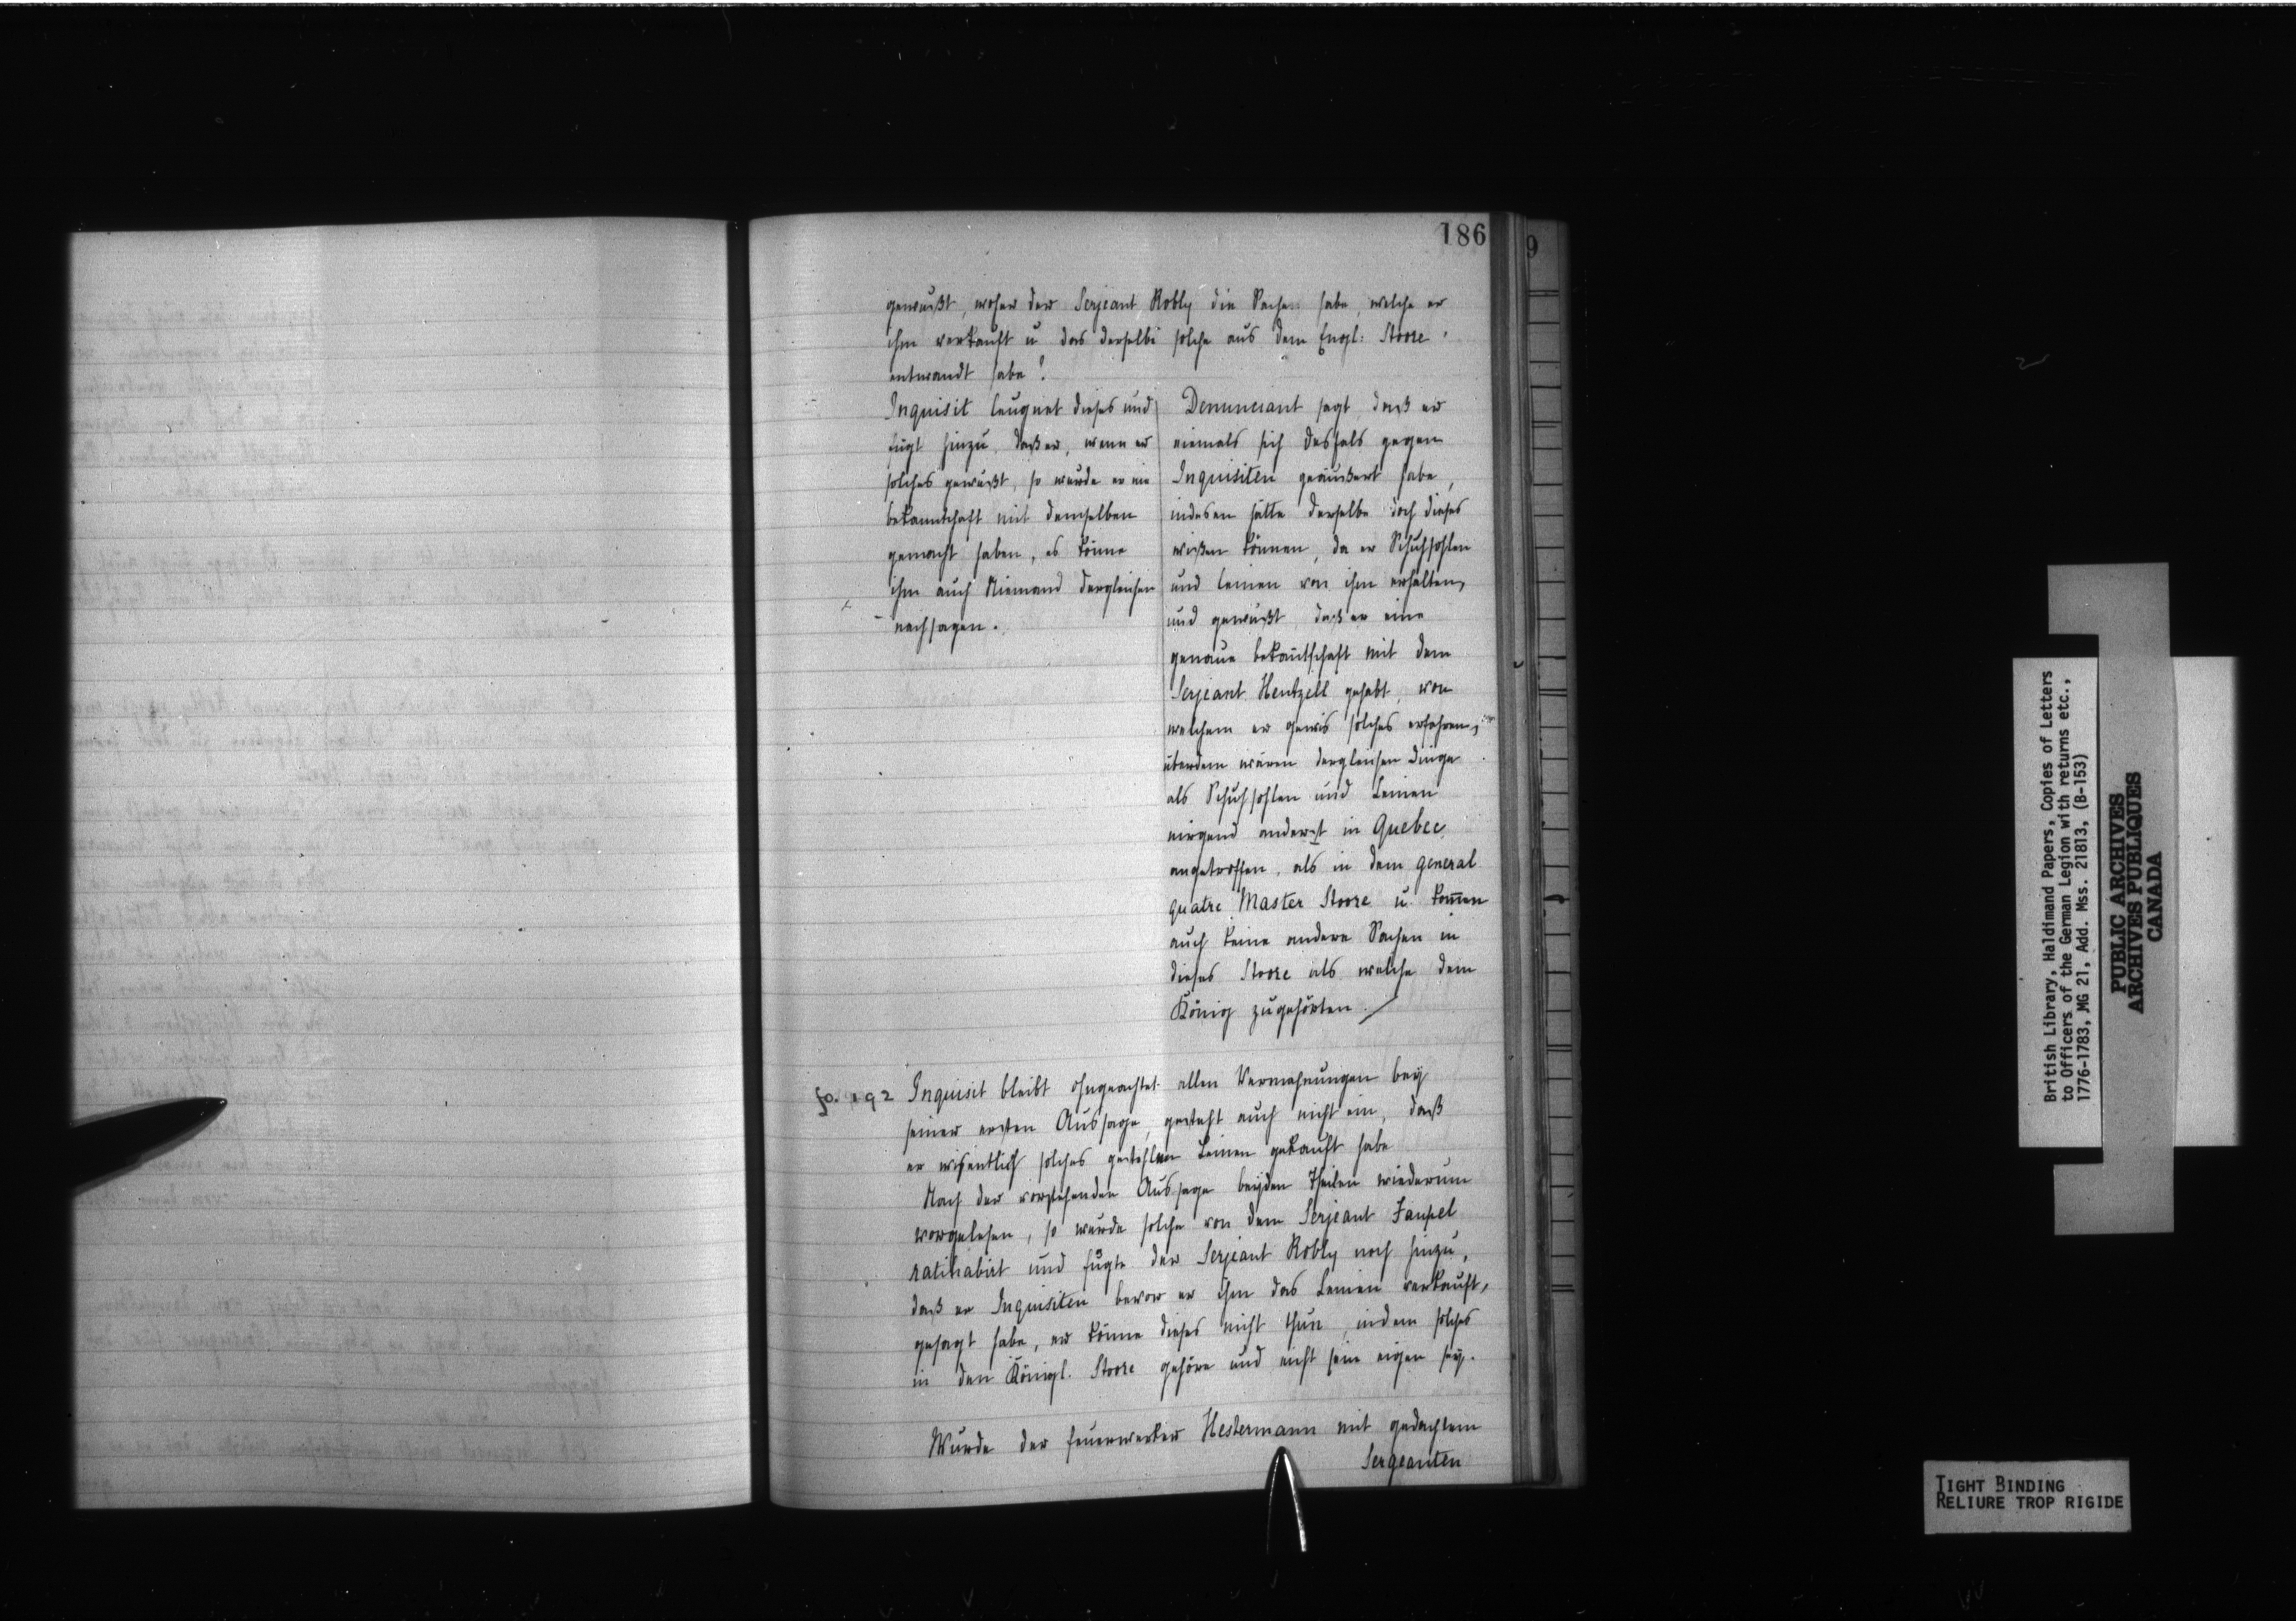 186
9
gewußt, woher der Serjeant Robly die Sachen habe, welche er
ihm verkauft u das derselbe solche aus dem Engl: Stoore
entwandt habe?
Inquisit leugnet dieses und
fügt hinzu, daß er, wenn er
solches gewußt, so würde er nie
bekanntschaft mit demselben
gemacht haben, es könne
ihm auch Niemand dergleichen
nachsagen.
Denunciant sagt, daß er
niemals sich desfals gegen
Inquisiten geäußert habe,
indesen hätte derselbe doch dieses
wißen können, da er Schuhsohlen
und leinen von ihm erhalten,
und gewußt, daß er eine
genaue bekantschaft mit dem
Serjeant Hentzell gehabt, von
welchem er gewis solches erfahren,
überdem wären dergleichen Dinge
als Schuhsohlen und Leinen
nirgend anderst in Quebec
angetroffen, als in dem general
quatre Master Stoore u. kom̄en
auch keine andere Sachen in
dieses Stoore als welche dem
König zugehörten.
fo. 192
Inquisit bleibt ohngeachtet allen Vermahnungen bey
seiner ersten Aussage, gesteht auch nicht ein, daß
er wißentlich solches gestohlen Leinen gekauft habe
Nach der vorstehenden Aussage beyden Theilen wiederum
vorgelesen, so wurde solche von dem Serjeant Faupel
ratihabirt und fügte der Serjeant Robly noch hinzu,
daß er Inquisiten bevor er ihm das Leinen verkauft,
gesagt habe, er könne dieses nicht thun, indem solches
in den Königl. Stoore gehöre und nicht sein eigen sey.
Wurde der feuerwerker Hestermann mit gedachtem
Sergeanten
British Library, Haldimand Papers, Copies of Letters
to Officers of the German Legion with returns etc.,
1776-1783, MG 21, Add. Mss. 21813, (B-153)
PUBLIC ARCHIVES
ARCHIVES PUBLIQUES
CANADA
TIGHT BINDING
RELIURE TROP RIGIDE